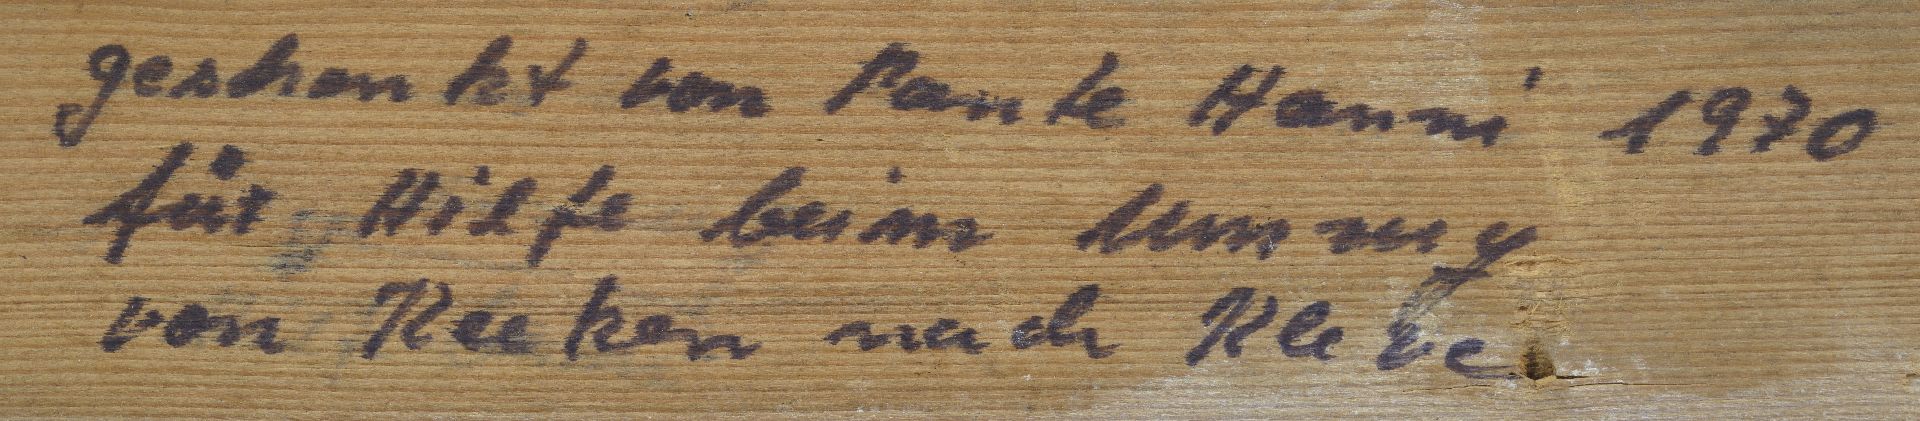 geschenkt von Tante Hanni 1970
für Hilfe beim Umzug
von Keeken nach Kleve